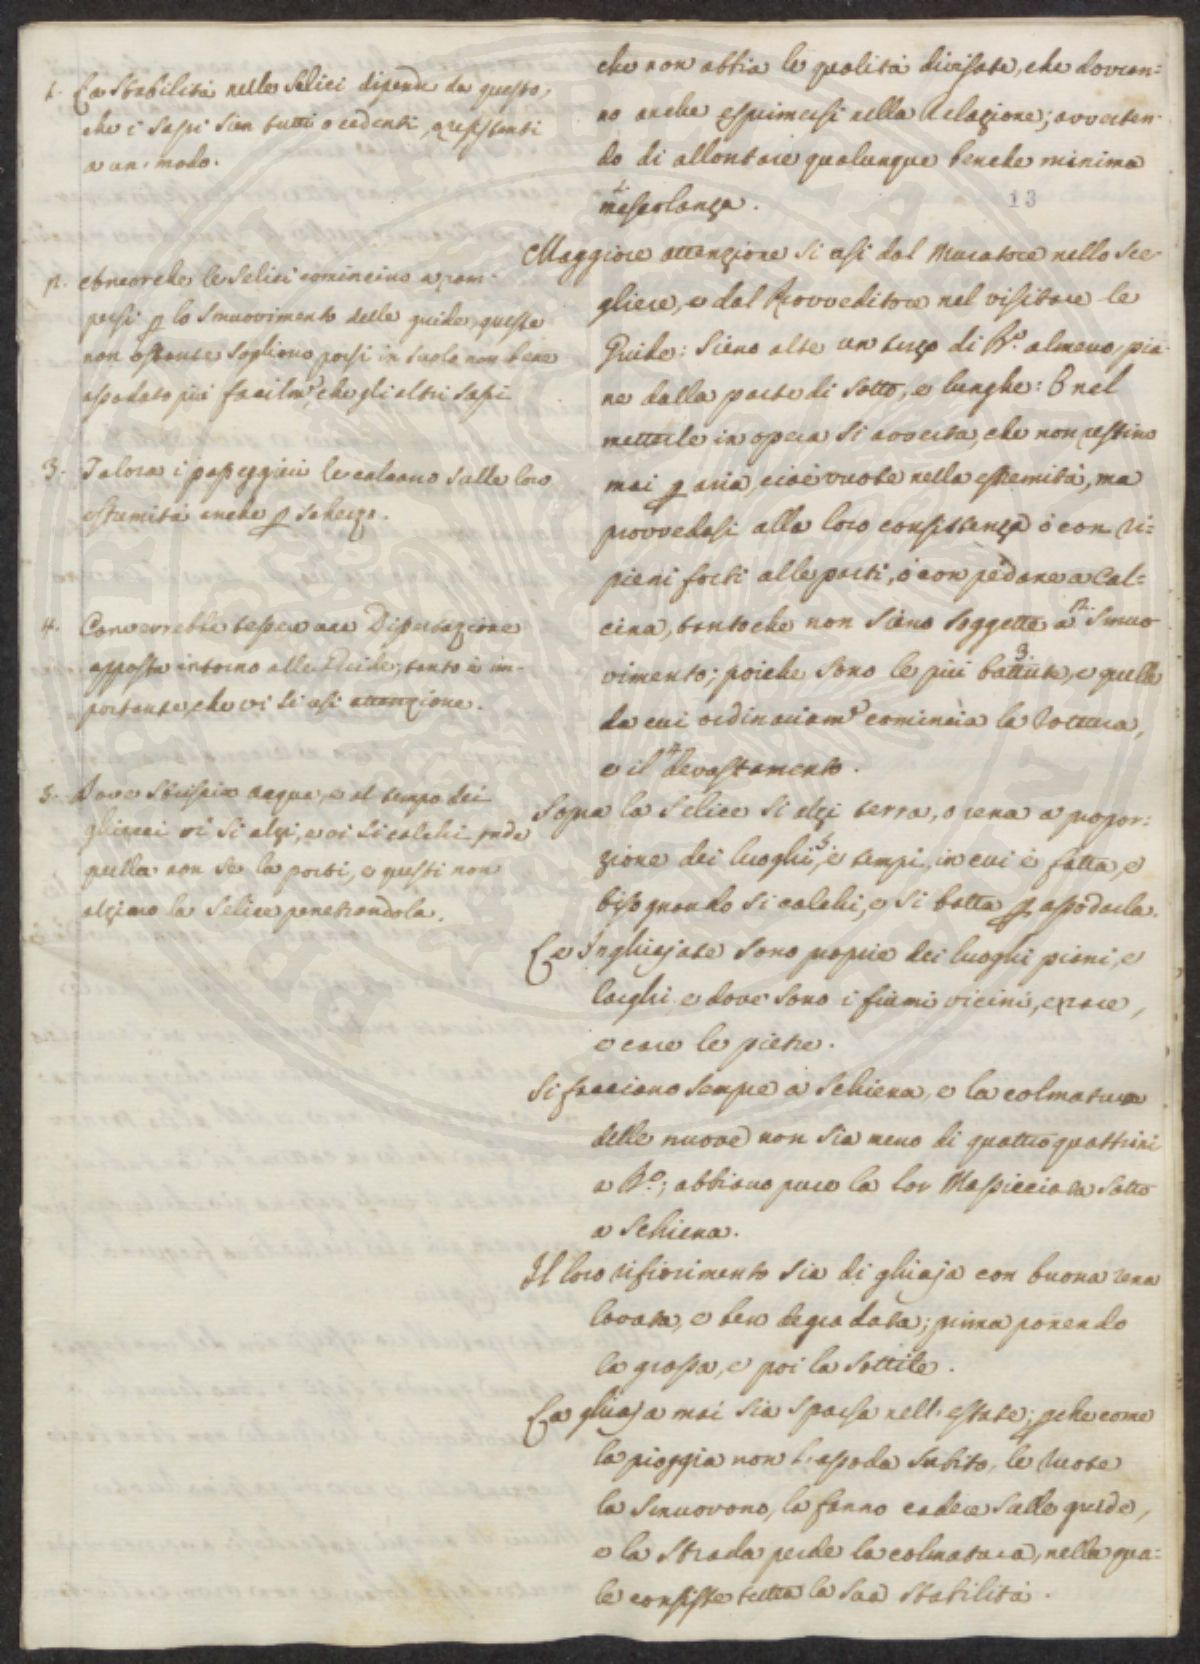 1. La Stabilità nelle Selici dipende da questo,
che i Sassi sien tutti o cedenti, o resistenti
a un modo.
2. Ancorche le Selici comincino a rom-
persi p lo Smuovimento delle guide, queste
non ostante sogliono porsi in suolo non bene
assodato più facilmᵉ, che gli altri Sassi
3. Talora i passeggieri le calcano Sulle loro
estremità anche p scherzo.
4. Converrebbe tessere una Dissertazione
apposta intorno alle Guide; tanto è im-
portante, che vi si usi attenzione.
5. Dove Scorrino acque, e al tempo dei
ghiacci vi si alzi, e vi si calchi, onde
quella non se la porti, e questi non
alzino la Selice penetrandola.
che non abbia le qualità divisate, che dovran=
no anche esprimersi nella Relazione; avverten-
do di allontare qualunque benche minima
1. mescolanza.
13
Maggiore attenzione si usi dal Muratore nello Sce-
gliere, e dal Provveditore nel visitare le
Guide: Sieno alte un terzo di Bº. almeno, pia-
ne dalla parte di Sotto, e lunghe: E nel
metterle in opera Si avverta, che non restino
mai p aria, cioè vuote nella estremità, ma
provvedasi alla loro consistenza ò con ri=
pieni forti alle parti, ò con pedane a Cal=
cina, tantoche non Siano Soggette a 2. Smuo
vimento; poiche Sono le più battute 3., e quelle
da cui ordinariamᵉ comincia la rottura,
e il 4. devastamento.
Sopra la Selice Si alzi terra, o rena a propor=
zione dei luoghi 5., e tempi, in cui è fatta, e
bisognando si calchi, e Si batta p assodarla.
Le Inghiajate Sono proprie dei luoghi piani, e
larghi, e dove Sono i fiumi vicini, e rare,
e care le pietre.
Si facciano Sempre a Schiena, e la colmatura
delle nuove non Sia meno di quattro quattrini
a Bº.; abbiano pure la lor Massicciata Sotto
a Schiena.
Il loro rifiorimento Sia di ghiaja con buona rena
lavata, e ben degradata; prima ponendo
la grossa, e poi la Sottile.
La ghiaja mai Sia Sparsa nell'estate; pche come
la pioggia non l'assoda Subito, le ruote
la Smuovono, la fanno cadere Sulle guide,
e la Strada perde la colmatura, nella qua=
le consiste tutta la Sua Stabilità.